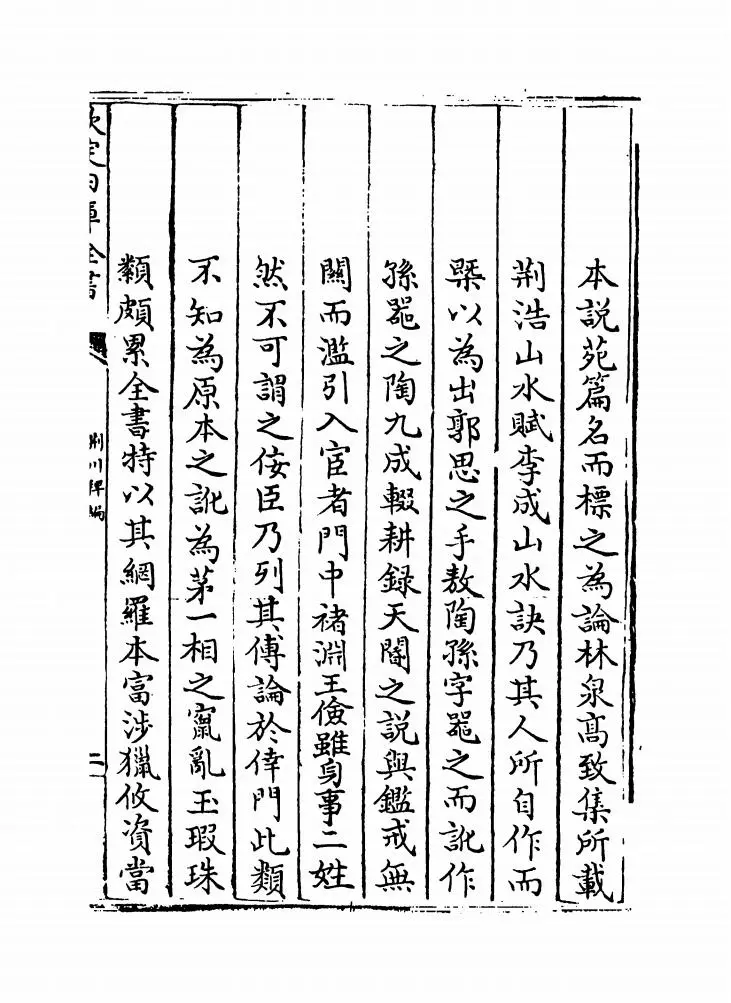 本説苑篇名而標之為論林泉髙致集所載
荆浩山水賦李成山水訣乃其人所自作而
槩以為出郭思之手敖陶孫字器之而訛作
孫器之陶九成輟耕録天閹之説與鑑戒無
關而濫引入宦者門中禇淵王儉雖身事二姓
然不可謂之佞臣乃列其傳論於倖門此類
不知為原本之訛為茅一相之竄亂玉瑕珠
纇頗累全書特以其網羅本富渉獵攸資當
欽定四庫全書
荆川稗編
二